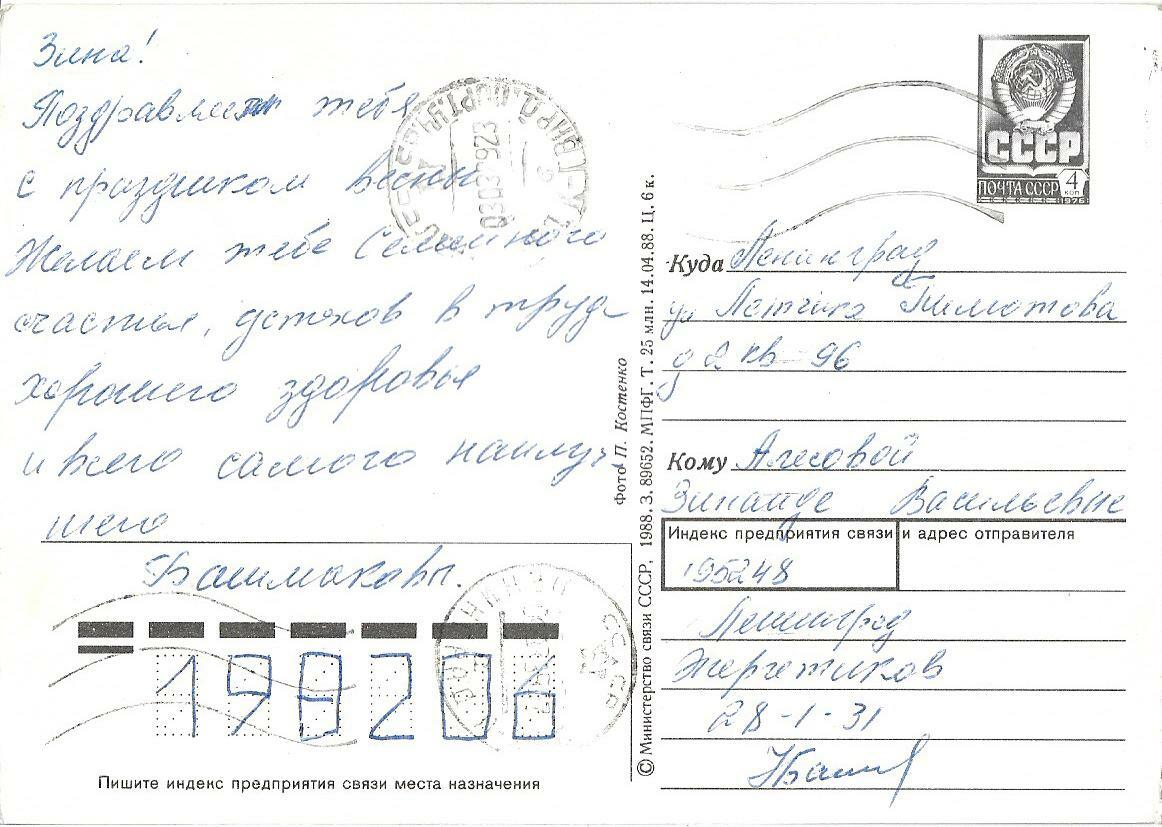 Зина!
Поздравляем тебя
с праздником весны
Желаем тебе Семейного
счастья, успехов в труде
хорошего здоровья
и всего самого наилуч
шего
Башмаковы.
192206
Пишите индекс предприятия связи места назначения
Фото П. Костенко
© Министерство связи СССР, 1988. З. 89652. МПФГ. Т. 25 млн. 14.04.88. Ц. 6 к.
СССР
ПОЧТА СССР 4
КОП
1976
Куда Ленинград
ул Летчика
д 2 кв 96
Кому
Зинаиде Васильевне
Индекс предприятия связи и адрес отправителя
195248
Ленинград
Энергетиков
28-1-31